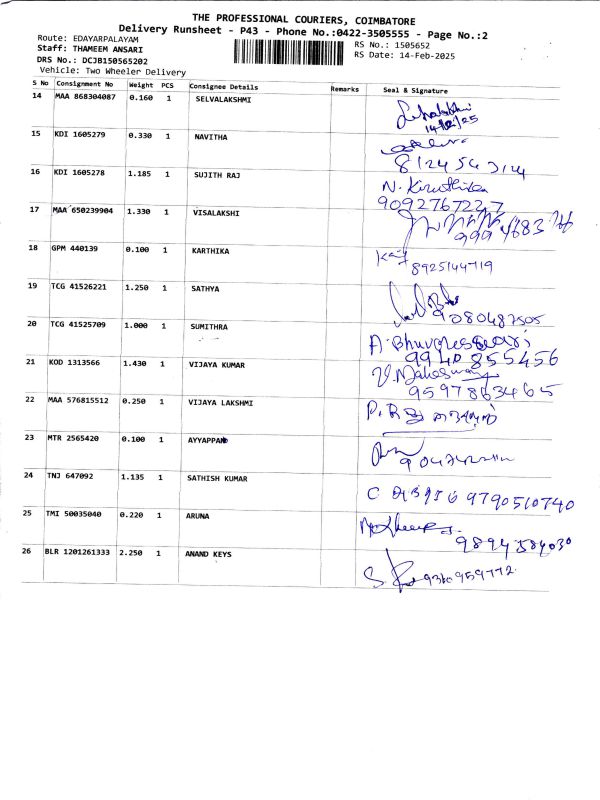 THE PROFESSIONAL COURIERS, COIMBATORE
Delivery Runsheet - P43 - Phone No.:0422-3505555 - Page No.:2
Route: EDAYARPALAYAM
RS No.: 1505652
Staff: THAMEEM ANSARI
RS Date: 14-Feb-2025
DRS No.: DCJB150565202
Vehicle: Two Wheeler Delivery
S No Consignment No Weight PCS Consignee Details Remarks Seal & Signature
14 MAA 868304087 0.160 1 SELVALAKSHMI
15 KDI 1605279 0.330 1 NAVITHA
16 KDI 1605278 1.185 1 SUJITH RAJ N. Kiruthika
9092767227
17 MAA 650239904 1.330 1 VISALAKSHI
18 GPM 440139 0.100 1 KARTHIKA
8925144719
19 TCG 41526221 1.250 1 SATHYA
9080487505
20 TCG 41525709 1.000 1 SUMITHRA A. Bhuvaneswari
9940855456
21 KOD 1313566 1.430 1 VIJAYA KUMAR V. Maheswari
9597863465
22 MAA 576815512 0.250 1 VIJAYA LAKSHMI
23 MTR 2565420 0.100 1 AYYAPPAN
24 TNJ 647092 1.135 1 SATHISH KUMAR
9790510740
25 TMI 50035040 0.220 1 ARUNA
9894584030
26 BLR 1201261333 2.250 1 ANAND KEYS
9360959772